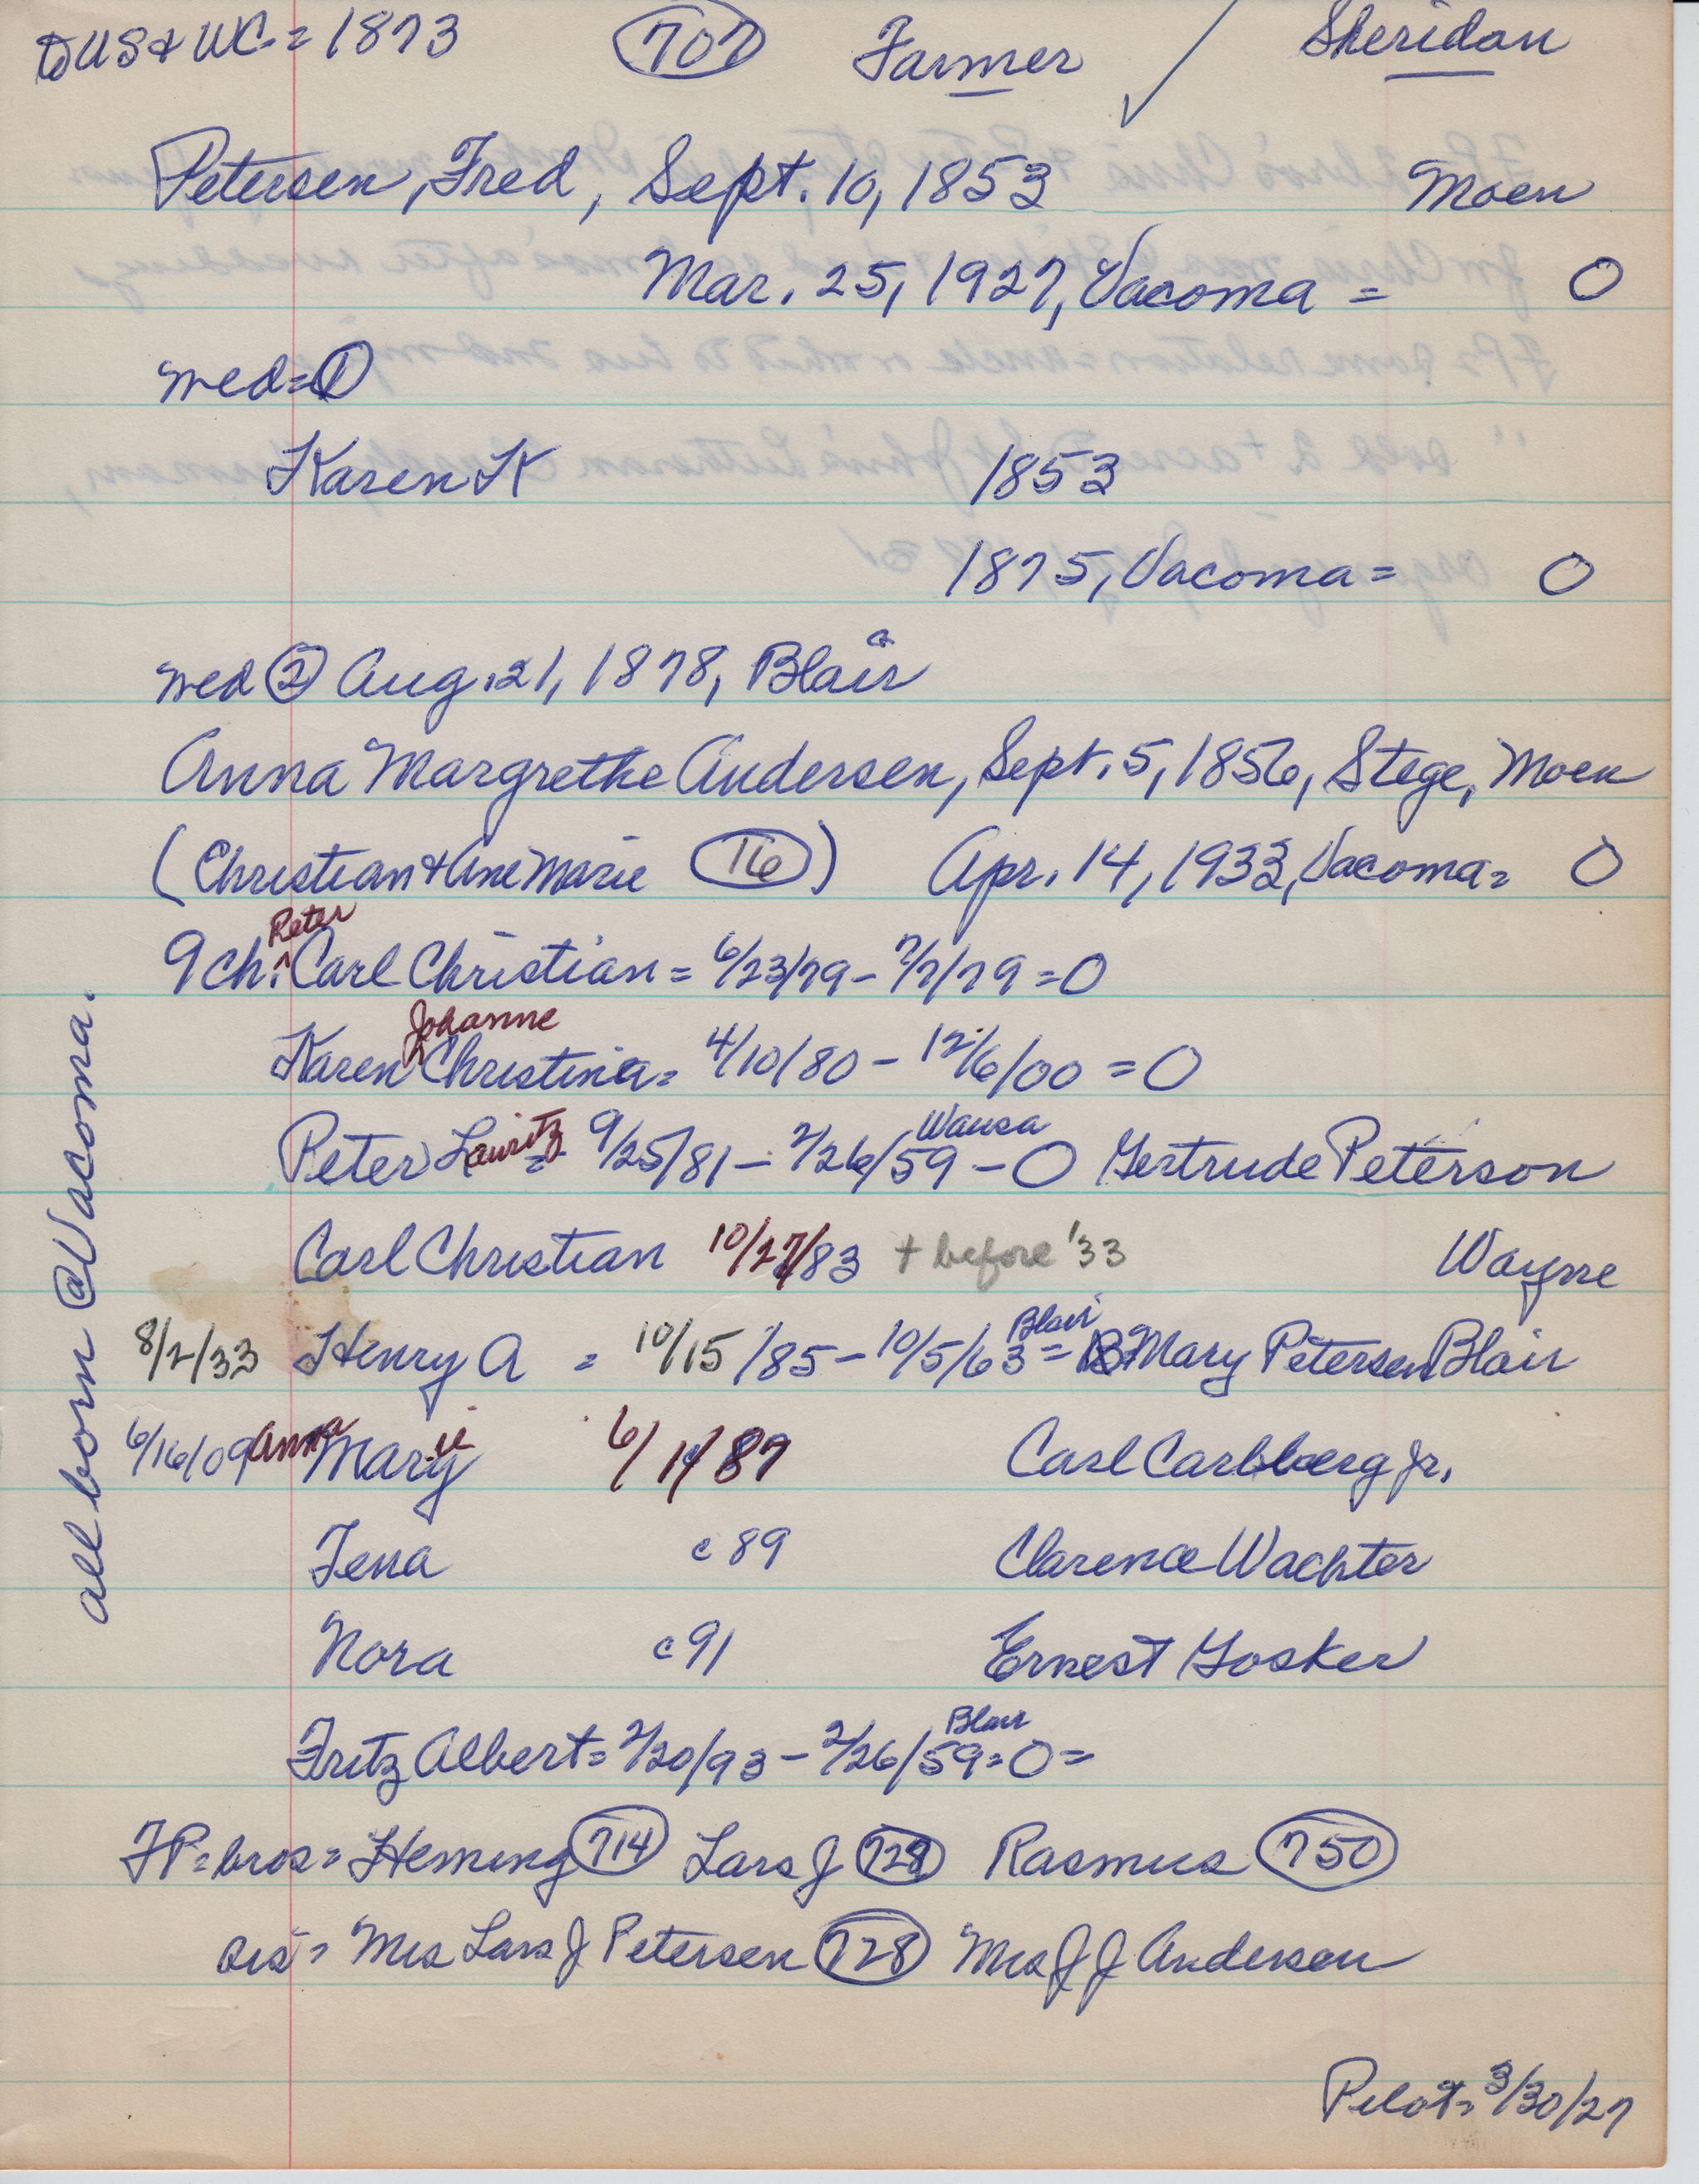 to US & WC = 1873 707 Farmer ✓ Sheridan
Petersen, Fred, Sept. 10, 1853 Moen
Mar. 25, 1927, Vacoma = O
med = ①
Karen K 1853
1875, Vacoma = O
med ② Aug. 21, 1878, Blair
Anna Margrethe Andersen, Sept. 5, 1856, Stege, Moen
(Christian & Ane Marie 16) Apr. 14, 1933, Vacoma = O
9 ch: Peter Carl Christian = 6/23/79 - 7/7/79 = O
Karen Johanne Christina = 4/10/80 - 12/6/00 = O
Peter Lauritz = 9/25/81 - 2/26/59 Wausa - O Gertrude Peterson
Carl Christian 10/27/83 + before '33 Wayne
8/2/33 Henry A = 10/15/85 - 10/5/63 Blair = Mary Petersen Blair
6/16/09 Anna Marie 6/11/87 Carl Carlsberg Jr.
Tena c 89 Clarence Wachter
Nora c 91 Ernest Gosker
Fritz Albert = 2/20/93 - 2/26/59 Blair = O =
all born @ Vacoma.
FP = bros = Heming 714 Lars J 728 Rasmus 750
sis = Mrs Lars J Petersen 728 Mrs J J Andersen
Pilot = 3/30/27